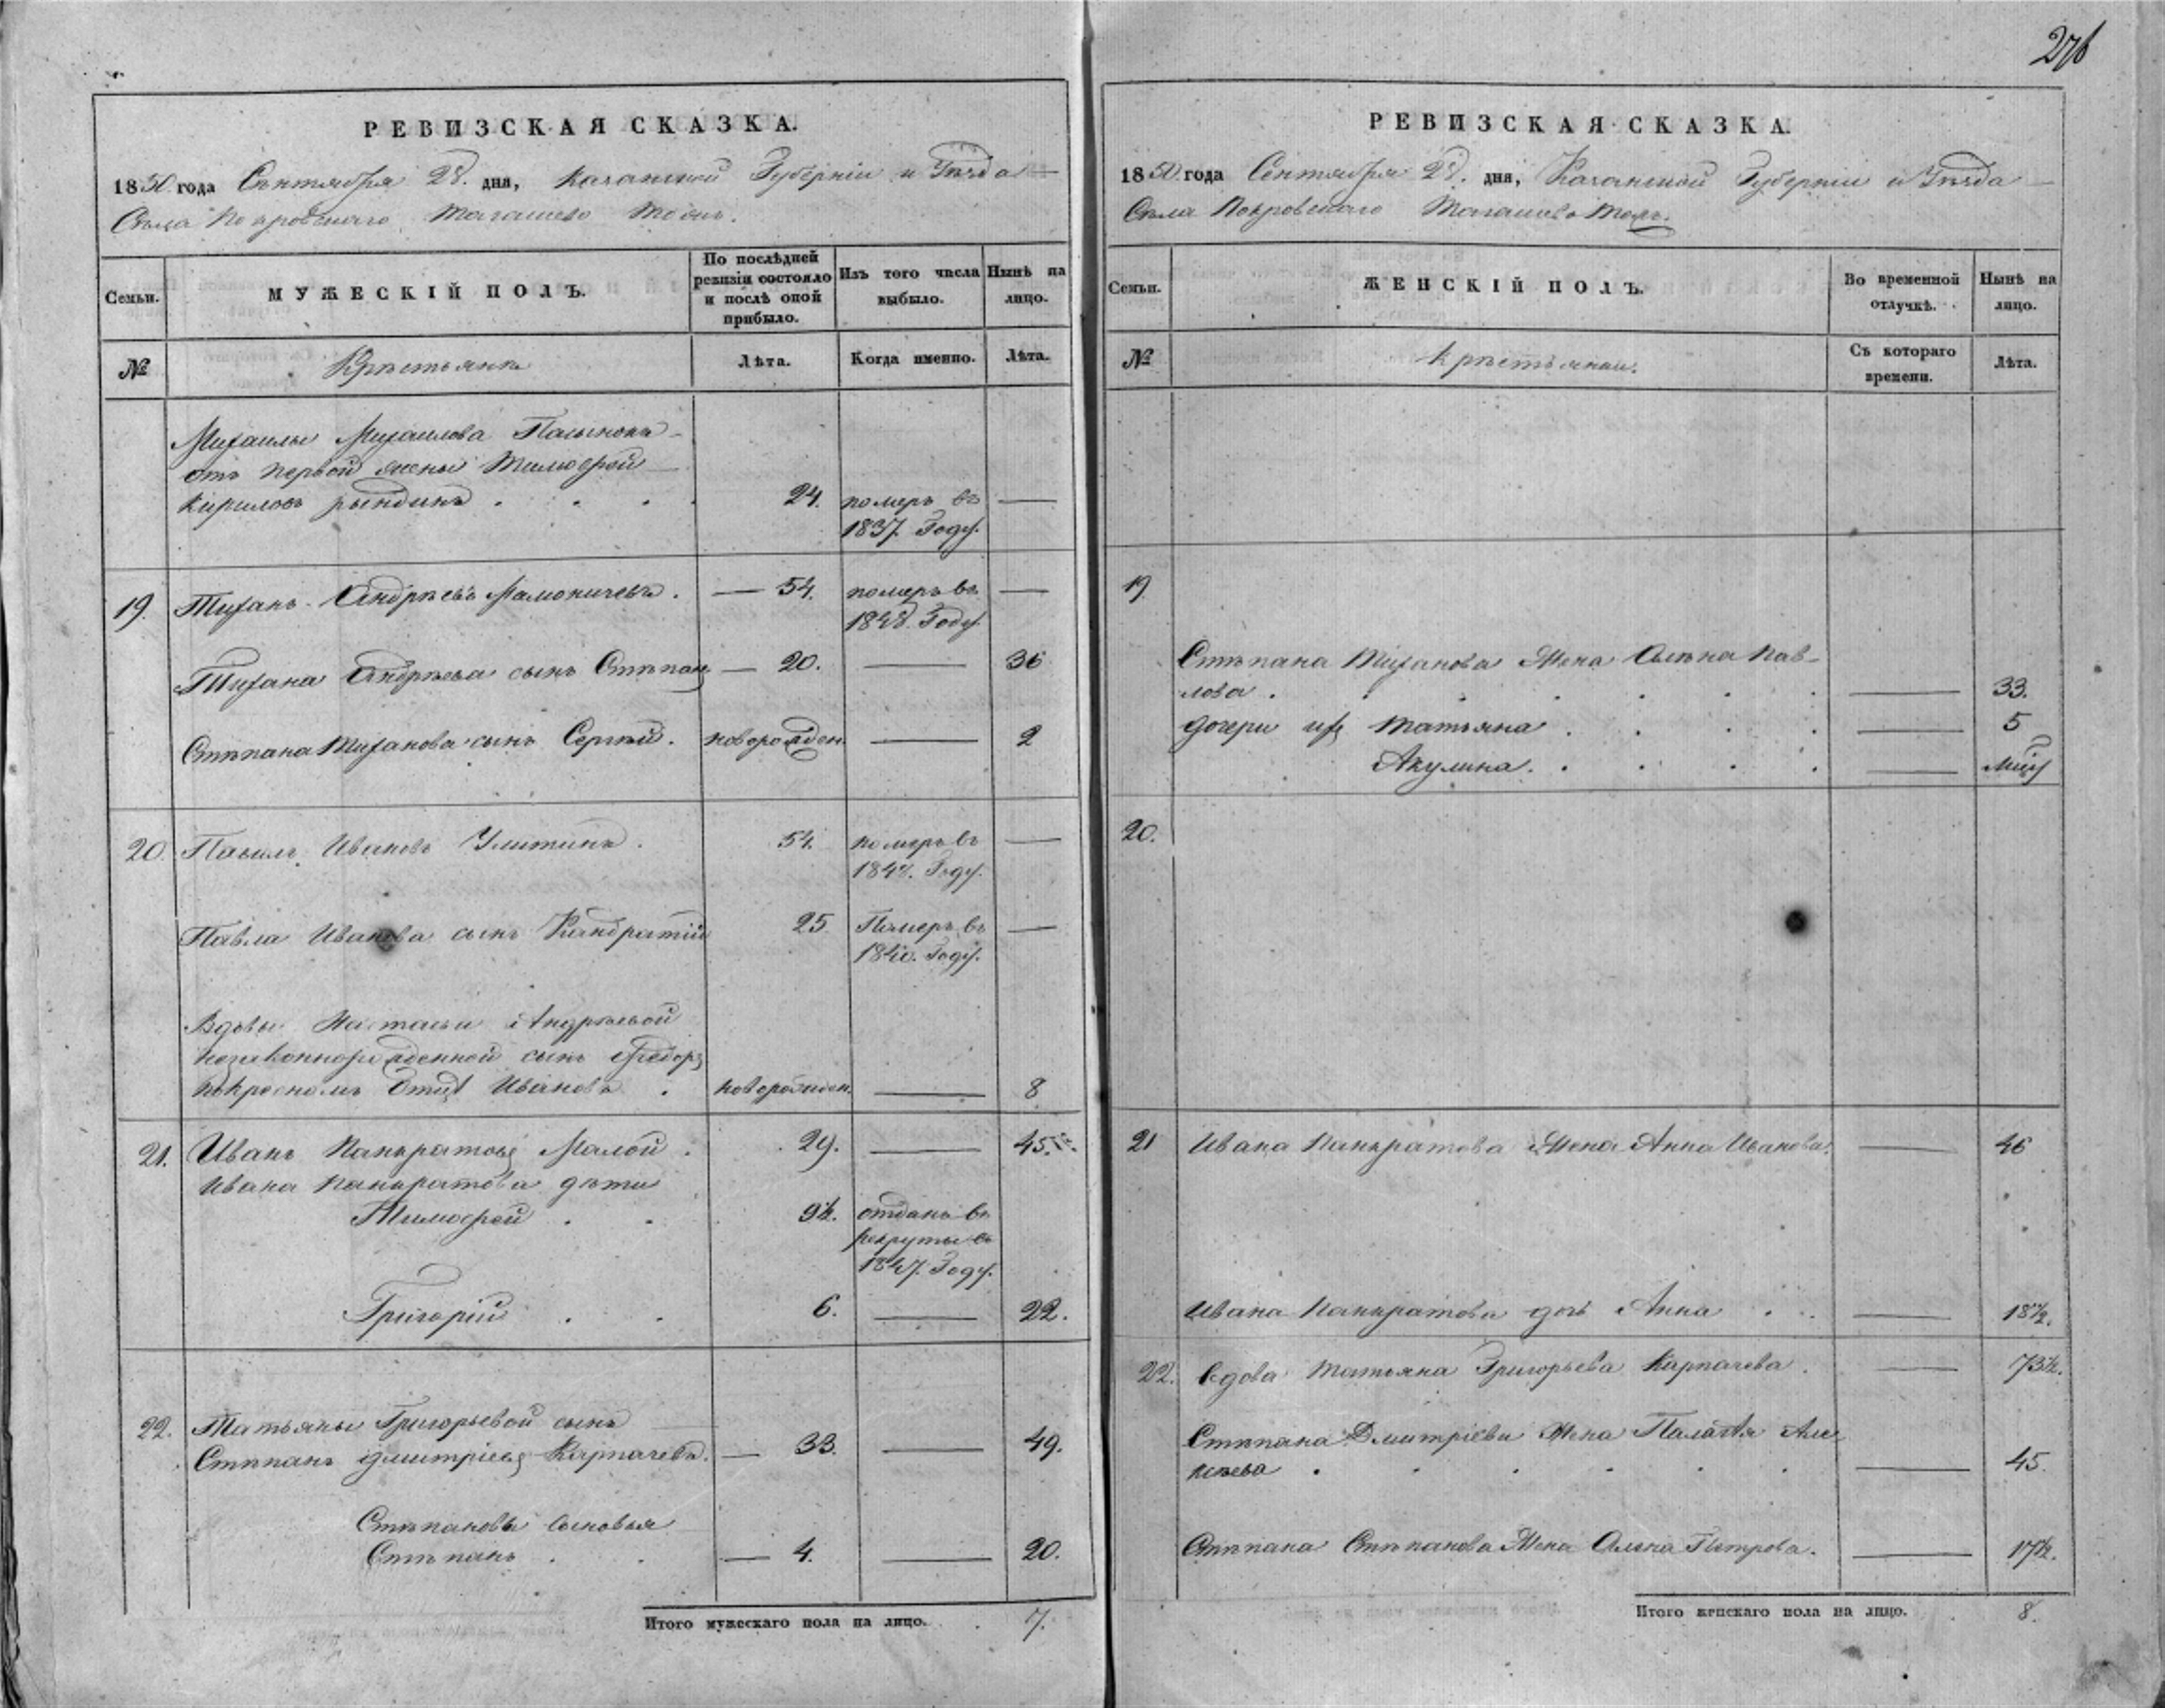 276
РЕВИЗСКАЯ СКАЗКА.
1850 года Сентября 28. дня, Казанской Губерніи и Уѣзда
Села Покровскаго Тагашево тожъ.
Семьи.
МУЖЕСКІЙ ПОЛЪ.
По послѣдней ревизіи состояло и послѣ оной прибыло.
Изъ того числа выбыло.
Нынѣ на лицо.
№
Крѣстьянѣ
Лѣта.
Когда именно.
Лѣта.
Михаилы Михаилова Пасынокъ
отъ первой жены Тимофей
Кириловъ рындинъ . . . . 24. померъ въ —
1837. Году.
19. Тиханъ Андрѣевъ Мамоничевъ. — 54. померъ въ —
1848. Году.
Тихана Андрѣева сынъ Стѣпанъ — 20. — 36
Стѣпана Тиханова сынъ Сергѣй. новорожден. — 2
20. Павилъ Ивановъ Улитинъ. 54. померъ въ —
1848. Году.
Павла Иванова сынъ Кандратій 25. Памеръ въ —
1840. Году.
Вдовы Настасьи Андрѣевой
незаконнорожденной сынъ Федоръ
покресному Отцу Ивановъ . новорожден. — 8
21. Иванъ Панкратовъ Малой . 29. — 45.
Ивана Панкратова дѣти
Тимофей . . 9½. отданъ въ
рекруты въ
1847. Году.
Григорій . . 6. — 22.
22. Татьяны Григорьевой сынъ
Стѣпанъ Дмитріевъ Карпачевъ. — 33. — 49.
Стѣпановы сыновья
Стѣпанъ . . — 4. — 20.
Итого мужескаго пола на лицо. 7.
РЕВИЗСКАЯ СКАЗКА.
1850 года Сентября 28. дня, Казанской Губерніи и Уѣзда
Села Покровскаго Тагашево тожъ.
Семьи.
ЖЕНСКІЙ ПОЛЪ.
Во временной отлучкѣ.
Нынѣ на лицо.
№
Крѣстьянки.
Съ котораго времени.
Лѣта.
19
Стѣпана Тиханова Жена Алѣна Пав-
лова . . . . . — 33.
дочери ихъ Татьяна . . . — 5
Акулина. . . . . — Мцъ
20.
21 Ивана Панкратова Жена Анна Иванова. — 46
Ивана Панкратова дочь Анна . . — 18½.
22. Вдова Татьяна Григорьева Карпачева. — 73½.
Стѣпана Дмитріева Жена Палагѣя Але
ксѣева . . . . . . — 45.
Стѣпана Стѣпанова Жена Алѣна Пѣтрова. — 17½.
Итого женскаго пола на лицо. 8.